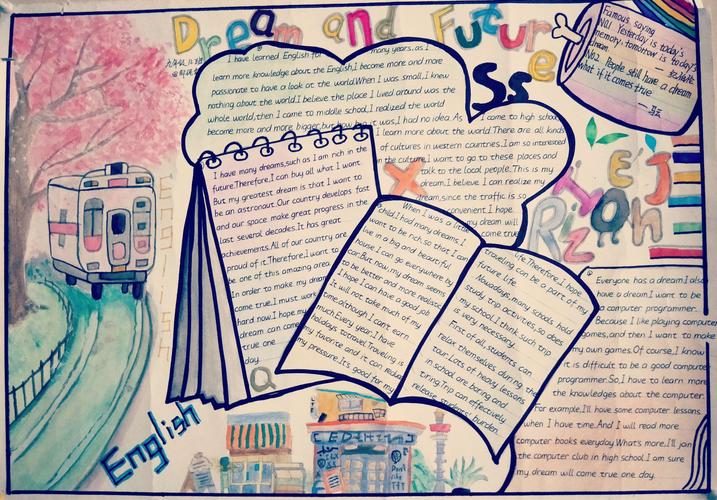 Dream and Future
Famous saying
NO1. Yesterday is today's
memory, tomorrow is today's
dream.
NO2. People still have a dream
what if it comes true
I have learned English for many years, as I
learn more knowledge about the English, I become more and more
passionate to have a look at the world. When I was small, I knew
nothing about the world. I believe the place I lived around was the
whole world, then I came to middle school, I realized the world
become more and more bigger, but how big it was, I had no idea. As I come to high school,
I learn more about the world. There are all kinds
of cultures in western countries. I am so interested
in the culture. I want to go to these places and
talk to the local people. This is my
dream. I believe I can realize my
dream, since the traffic is so
convenient. I hope
my dream will
come true
Ss
I have many dreams, such as I am rich in the
future. Therefore, I can buy all what I want
But my greatest dream is that I want to
be an astronaut. Our country develops fast
and our space make great progress in the
last several decades. It has great
achievements. All of our country are
proud of it. Therefore, I want to
be one of this amazing area
In order to make my dream
come true. I must work
hard now. I hope my
dream can come
true one
day.
When I was a little
child, I had many dreams, I
want to be rich, so that I can
live in a big and beautiful
house. I can go everywhere by
car. But now, my dream seems
to be better and more realistic
I hope I can have a good job
It will not take much of my
time, although I can't earn
much. Every year, I have
holidays to travel. Traveling is
my favorite and it can reduce
my pressure. It's good for my
life. Therefore, I hope
traveling can be a part of my
future life.
Nowadays, many schools hold
study trip activities, so does
my school. I think such trip
is very necessary.
First of all, students can
relax themselves during the
tour. Lots of heavy lessons
in school are boring and
tiring. Trip can effectively
release students' burden.
Everyone has a dream. I also
have a dream. I want to be
a computer programmer.
Because I like playing computer
games, and then I want to make
my own games. Of course, I know
it is difficult to be a good computer
programmer. So, I have to learn more
the knowledges about the computer.
For example, I'll have some computer lessons
when I have time. And I will read more
computer books everyday. What's more, I'll join
the computer club in high school. I am sure
my dream will come true one day.
English